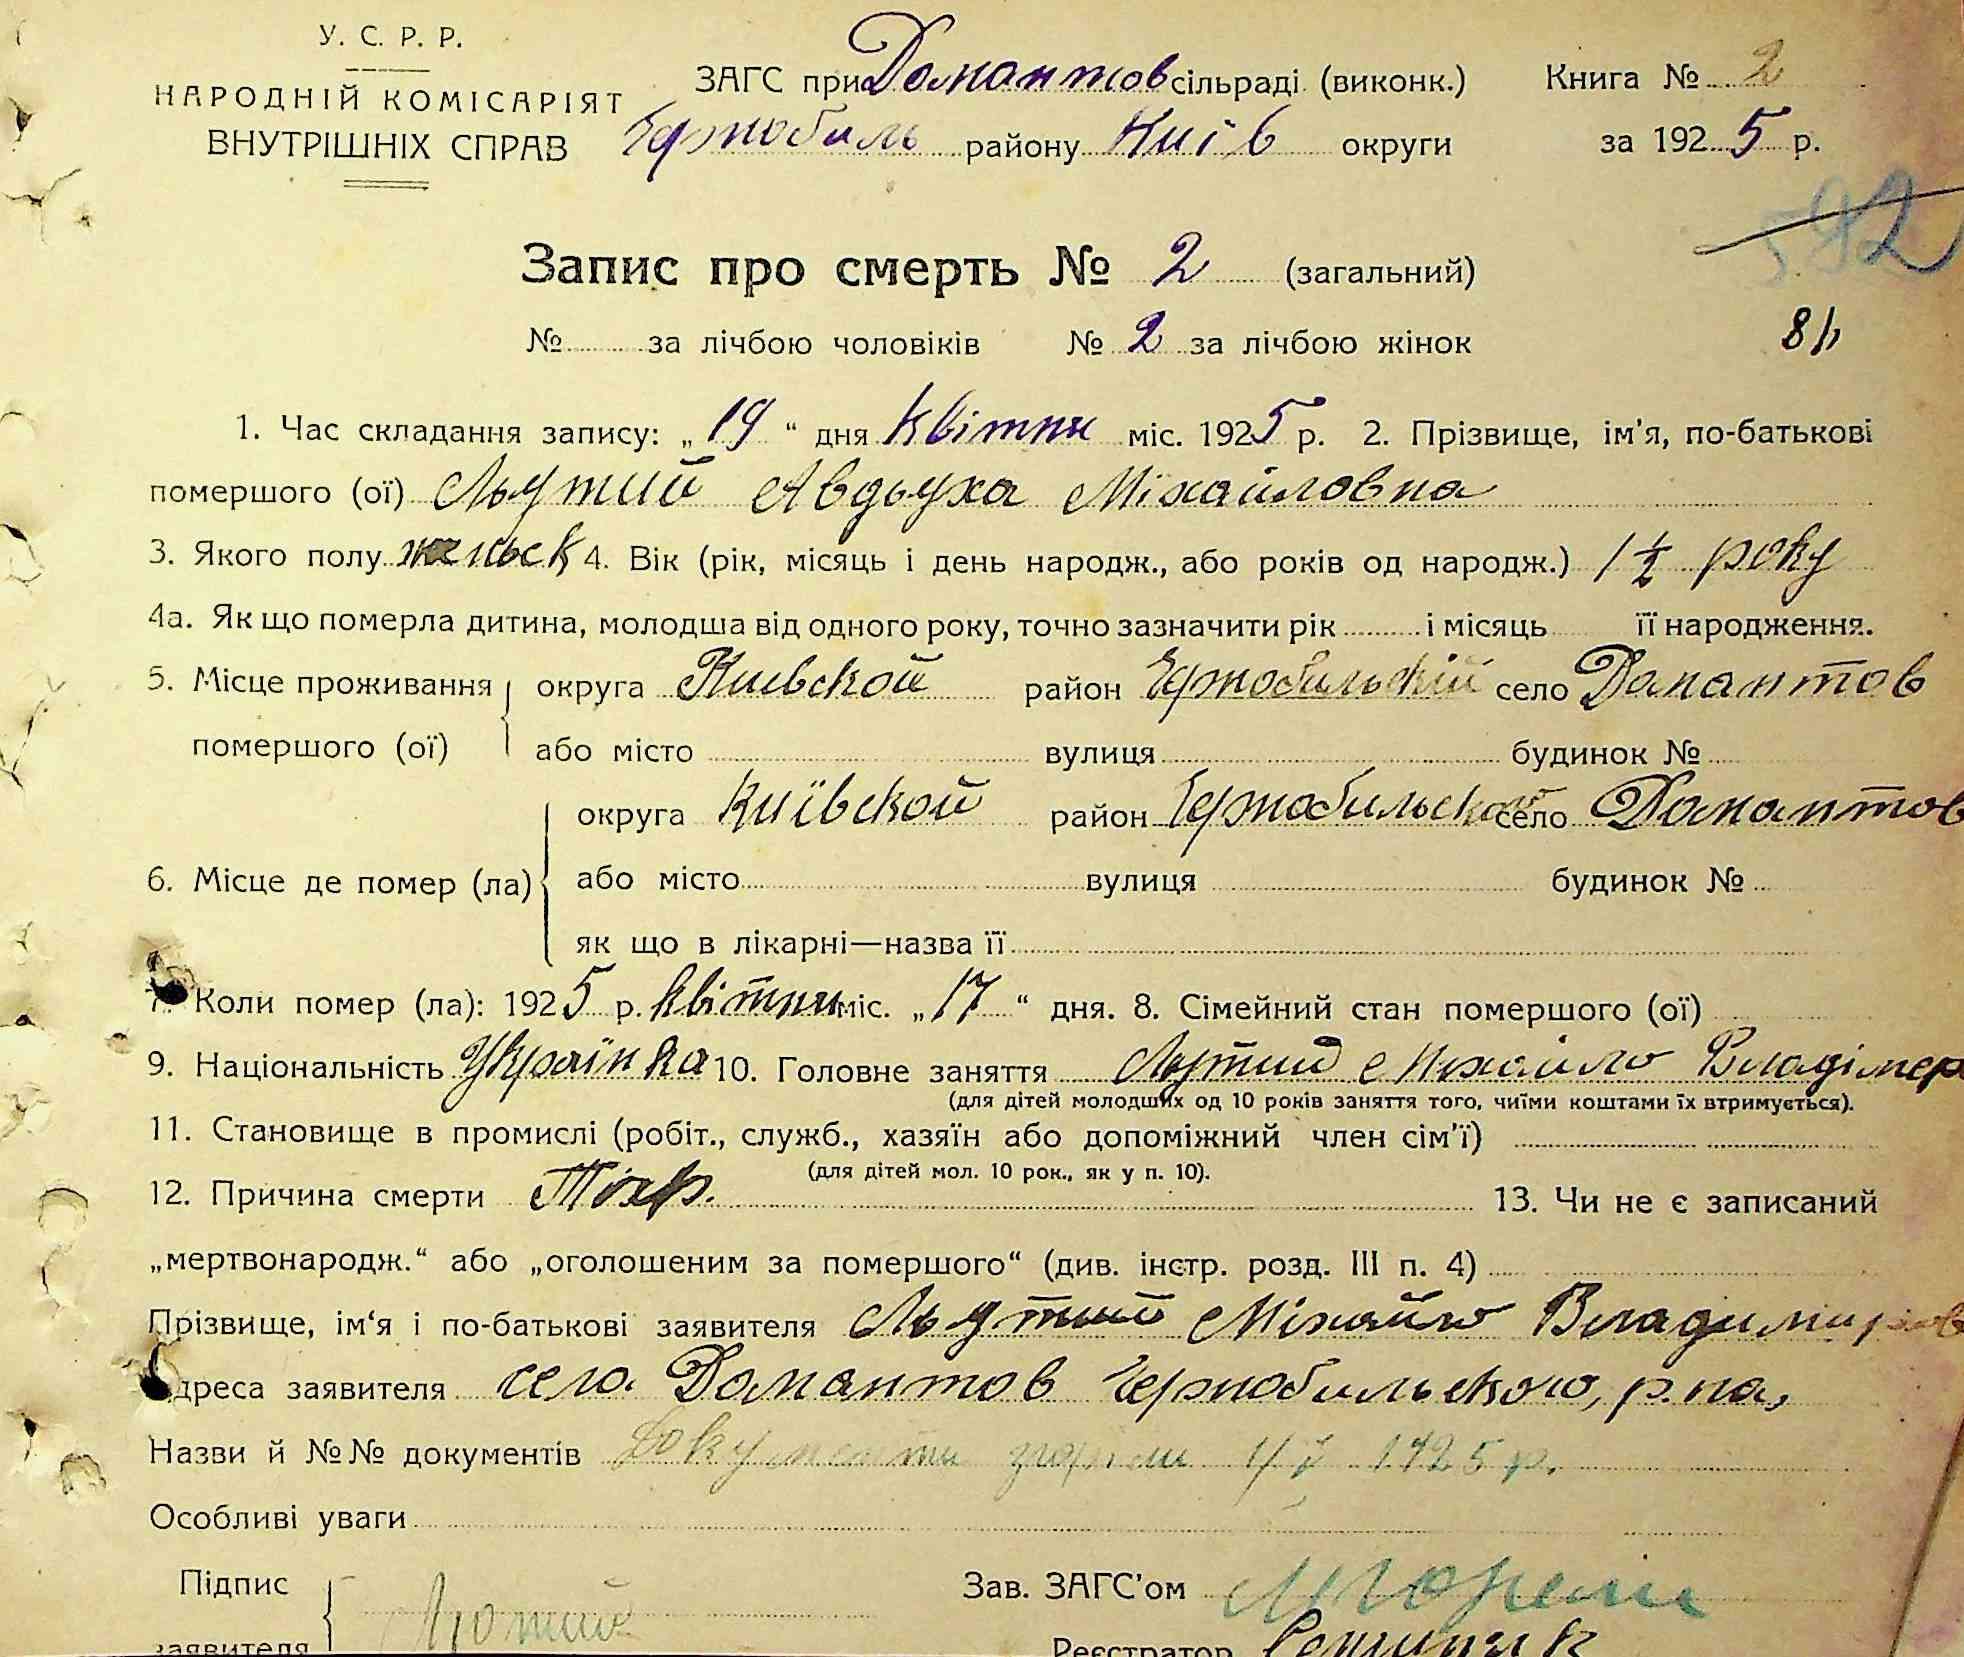 У. С. Р. Р.
НАРОДНІЙ КОМІСАРІЯТ
ВНУТРІШНІХ СПРАВ
ЗАГС при Домантов сільраді (виконк.) Книга № 2
Чорнобиль району Киів округи за 1925 р.
592
Запис про смерть № 2 (загальний)
№ за лічбою чоловіків № 2 за лічбою жінок
1. Час складання запису: „19“ дня квітни міс. 1925 р. 2. Прізвище, ім'я, по-батькові
помершого (ої) Льутий Авдьуха Міхайловна
3. Якого полу женьск 4. Вік (рік, місяць і день народж., або років од народж.) 1½ року
4а. Як що померла дитина, молодша від одного року, точно зазначити рік і місяць її народження.
5. Місце проживання округа Киевской район Чорнобильскій село Домантов
помершого (ої) або місто вулиця будинок №
округа Київской район Чернобильского село Домантов
6. Місце де помер (ла) або місто вулиця будинок №
як що в лікарні—назва її
7. Коли помер (ла): 1925 р. квітни міс. „17“ дня. 8. Сімейний стан помершого (ої)
9. Національність Українка 10. Головне заняття Лутий Михайло Владімер
(для дітей молодших од 10 років заняття того, чиїми коштами їх втримується).
11. Становище в промислі (робіт., служб., хазяїн або допоміжний член сім'ї)
(для дітей мол. 10 рок., як у п. 10).
12. Причина смерти 13. Чи не є записаний
„мертвонародж.“ або „оголошеним за помершого“ (див. інстр. розд. III п. 4)
Прізвище, ім‘я і по-батькові заявителя Льутий Міхайло Владимиров
Адреса заявителя села Домантов Чернобильского, р.на,
Назви й №№ документів Документи згоріли 1925 р.
Особливі уваги
Підпис Зав. ЗАГС'ом
заявителя Лютий Реєстратор